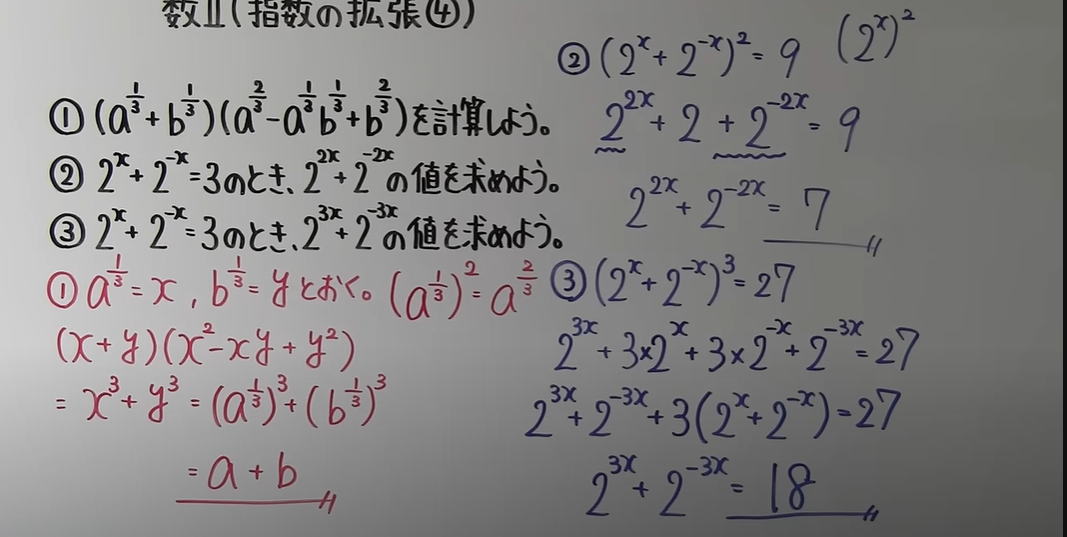 数Ⅱ(指数の拡張④)
① (a^{1/3} + b^{1/3})(a^{2/3} - a^{1/3}b^{1/3} + b^{2/3})を計算しよう。
② 2^x + 2^{-x} = 3のとき、2^{2x} + 2^{-2x}の値を求めよう。
③ 2^x + 2^{-x} = 3のとき、2^{3x} + 2^{-3x}の値を求めよう。
① a^{1/3} = x , b^{1/3} = y とおく。 (a^{1/3})^2 = a^{2/3}
(x + y)(x^2 - xy + y^2)
= x^3 + y^3 = (a^{1/3})^3 + (b^{1/3})^3
= a + b
② (2^x + 2^{-x})^2 = 9 (2^x)^2
2^{2x} + 2 + 2^{-2x} = 9
2^{2x} + 2^{-2x} = 7
③ (2^x + 2^{-x})^3 = 27
2^{3x} + 3×2^x + 3×2^{-x} + 2^{-3x} = 27
2^{3x} + 2^{-3x} + 3(2^x + 2^{-x}) = 27
2^{3x} + 2^{-3x} = 18